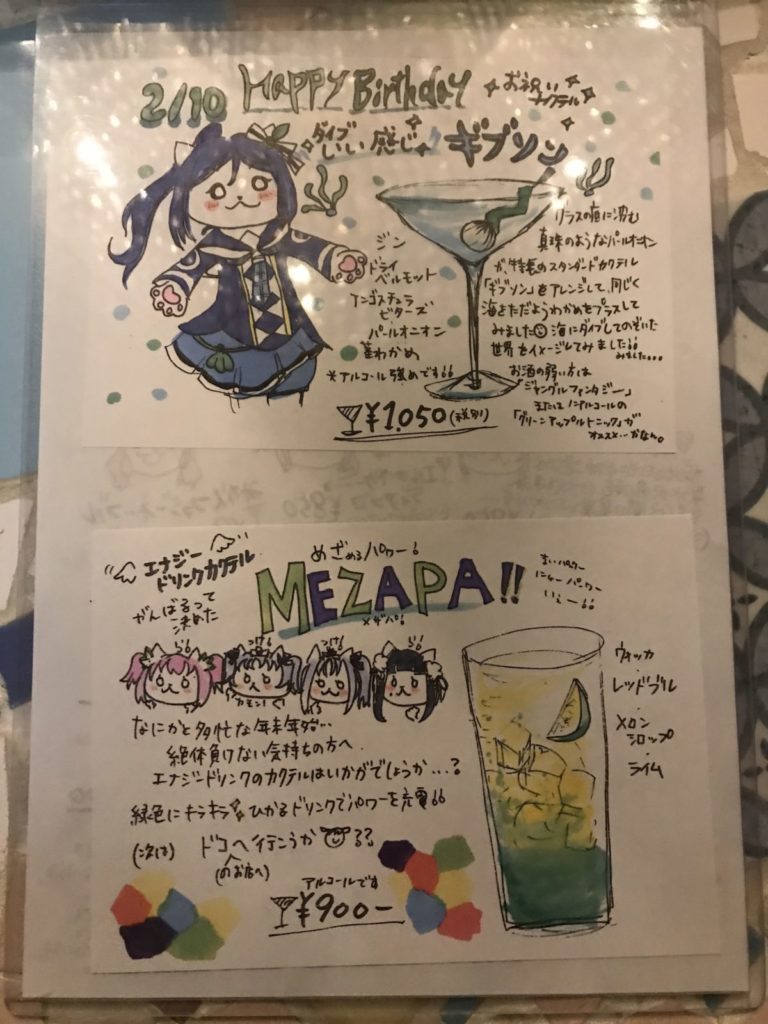 2/10 Happy Birthday
お祝い
カクテル
ダイブ
いい感じ
ギブソン
ジン
ドライ
ベルモット
アンゴスチュラ
ビターズ
パールオニオン
茎わかめ
*アルコール強めです!!
¥1,050(税別)
グラスの底に沈む
真珠のようなパールオニオン
が、特長のスタンダードカクテル
「ギブソン」をアレンジして、同じく
海をただようわかめをプラスして
みました 海にダイブしてのぞいた
世界をイメージしてみました!!
みました...
お酒の弱い方は
「ジャングルファンタジー」
またはノンアルコールの
「グリーンアップルトニック」が
オススメ…かなん。
エナジー
ドリンクカクテル
めざめるパワー!
MEZAPA!!
メザパ!
がんばるって
決めた
まいパワー
にゃーパワー
いぇーい!!
ウォッカ
・
レッドブル
・
メロン
シロップ
・
ライム
なにかと多忙な年末年始…
絶体負けない気持ちの方へ
エナジードリンクのカクテルはいかがでしょうか…?
緑色にキラキラひかるドリンクでパワーを充電!!
(次は)
ドコへ行こうか
る??
(のお店へ)
アルコールです
¥900-